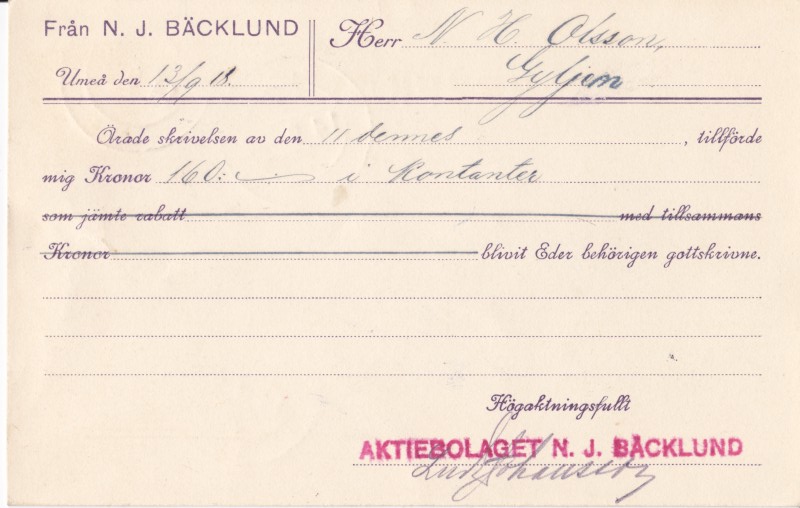 Från N. J. BÄCKLUND
Herr N. H. Olsson,
Umeå den 13/9 18.
Gyljen
Ärade skrivelsen av den 11 dennes, tillförde
mig Kronor 160:- i kontanter
som jämte rabatt med tillsammans
Kronor blivit Eder behörigen gottskrivne.
Högaktningsfullt
AKTIEBOLAGET N. J. BÄCKLUND
Johansson